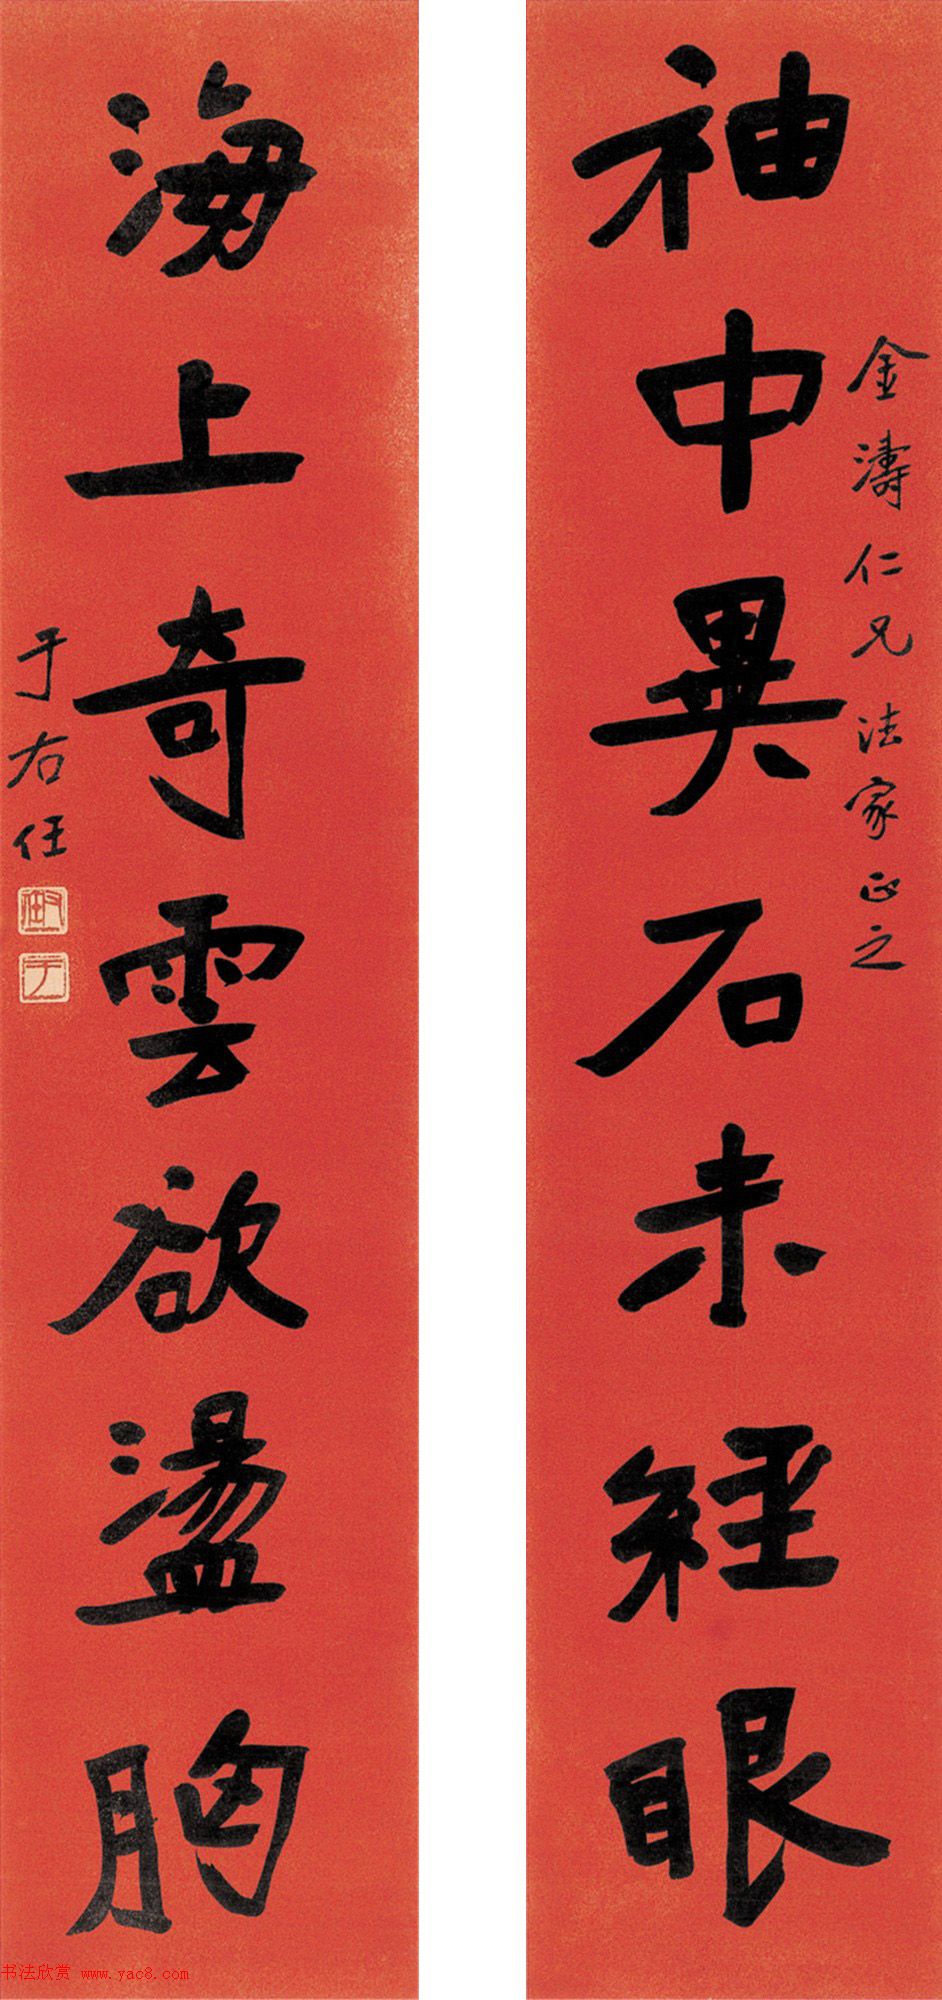 金濤仁兄法家正之
袖中異石未經眼
海上奇雲欲盪胸
于右任
书法欣赏 www.yac8.com